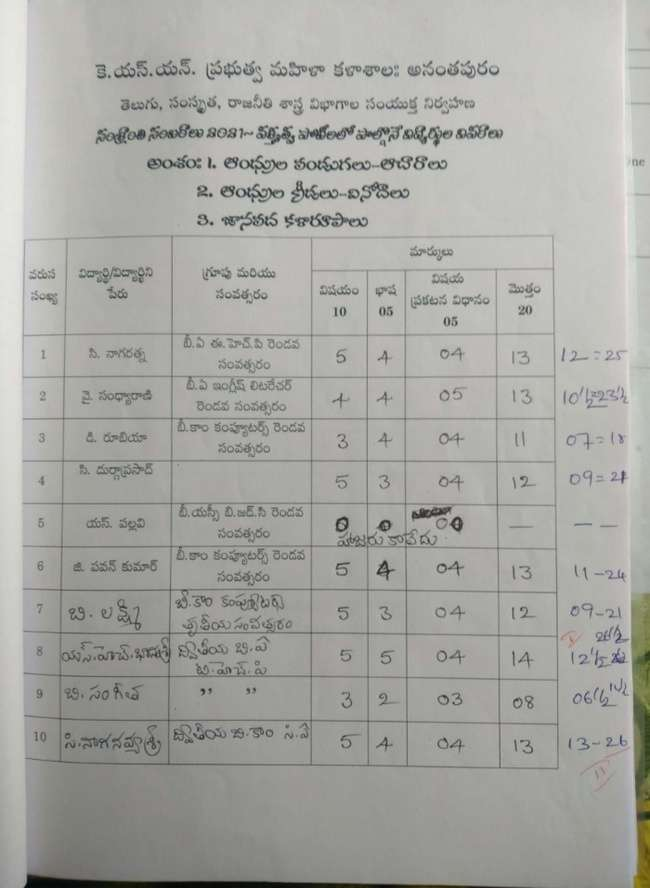 కె.యస్.యన్. ప్రభుత్వ మహిళా కళాశాల: అనంతపురం
తెలుగు, సంస్కృత, రాజనీతి శాస్త్ర విభాగాల సంయుక్త నిర్వహణ
సంక్రాంతి సంబరాలు 2021- వక్తృత్వ పోటీలలో పాల్గొనే విద్యార్థుల వివరాలు
అంశం: 1. ఆంధ్రుల పండుగలు-ఆచారాలు
2. ఆంధ్రుల క్రీడలు-వినోదాలు
3. జానపద కళారూపాలు
వరుస సంఖ్య విద్యార్థి/విద్యార్థిని పేరు గ్రూపు మరియు సంవత్సరం మార్కులు
విషయం 10 భాష 05 విషయ ప్రకటన విధానం 05 మొత్తం 20
1 సి. నాగరత్న బీ.ఏ ఈ.హెచ్.పి రెండవ సంవత్సరం 5 4 04 13 12 = 25
2 వై. సంధ్యారాణి బీ.ఏ ఇంగ్లీష్ లిటరేచర్ రెండవ సంవత్సరం 4 4 05 13 10 1/2 = 23 1/2
3 డి. రూబియా బీ.కాం కంప్యూటర్స్ రెండవ సంవత్సరం 3 4 04 11 07 = 18
4 సి. దుర్గాప్రసాద్ 5 3 04 12 09 = 21
5 యస్. పల్లవి బీ.యస్సీ బి.జడ్.సి రెండవ సంవత్సరం 0 0 00 — — —
హాజరు కాలేదు
6 జి. పవన్ కుమార్ బీ.కాం కంప్యూటర్స్ రెండవ సంవత్సరం 5 4 04 13 11 - 24
7 బి. లక్ష్మీ బీ.కాం కంప్యూటర్స్ తృతీయ సంవత్సరం 5 3 04 12 09 - 21
8 ద్వితీయ బి.ఏ 5 5 04 14 12 1/2 26 1/2
9 బి. సంగీత ” ” 3 2 03 08 06 1/2
10 సి. నాగనవ్యశ్రీ ద్వితీయ బి.కాం సి.ఏ 5 4 04 13 13 - 26
11